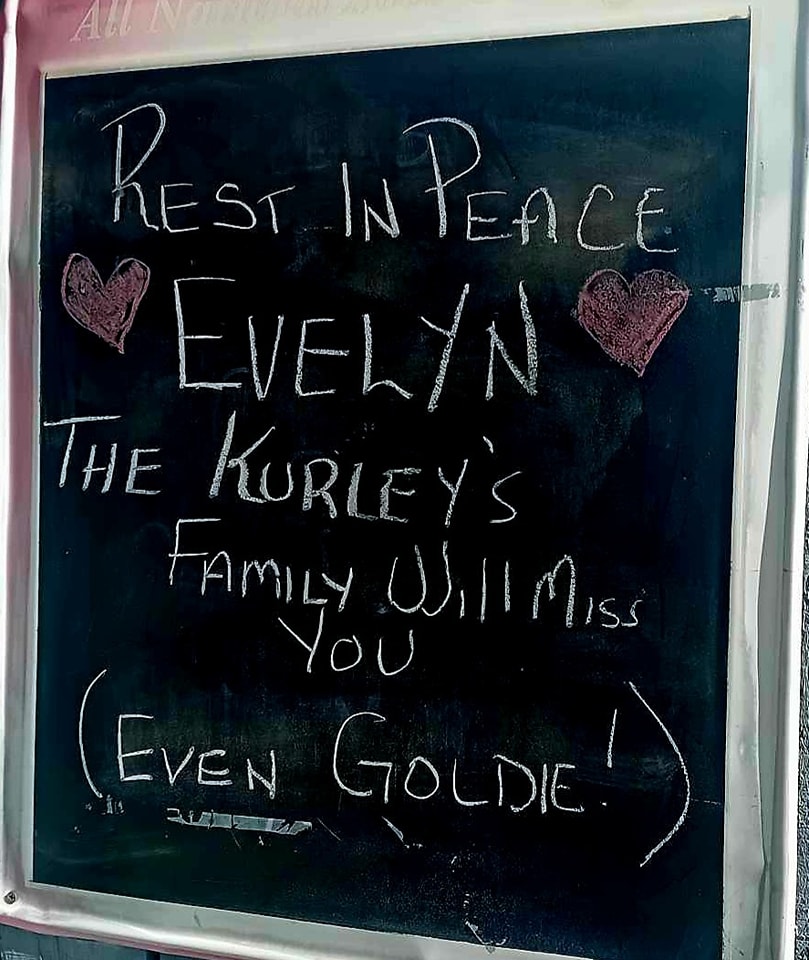 All
REST IN PEACE
EVELYN
THE KURLEY'S
FAMILY Will Miss
YOU
(EVEN GOLDIE!)